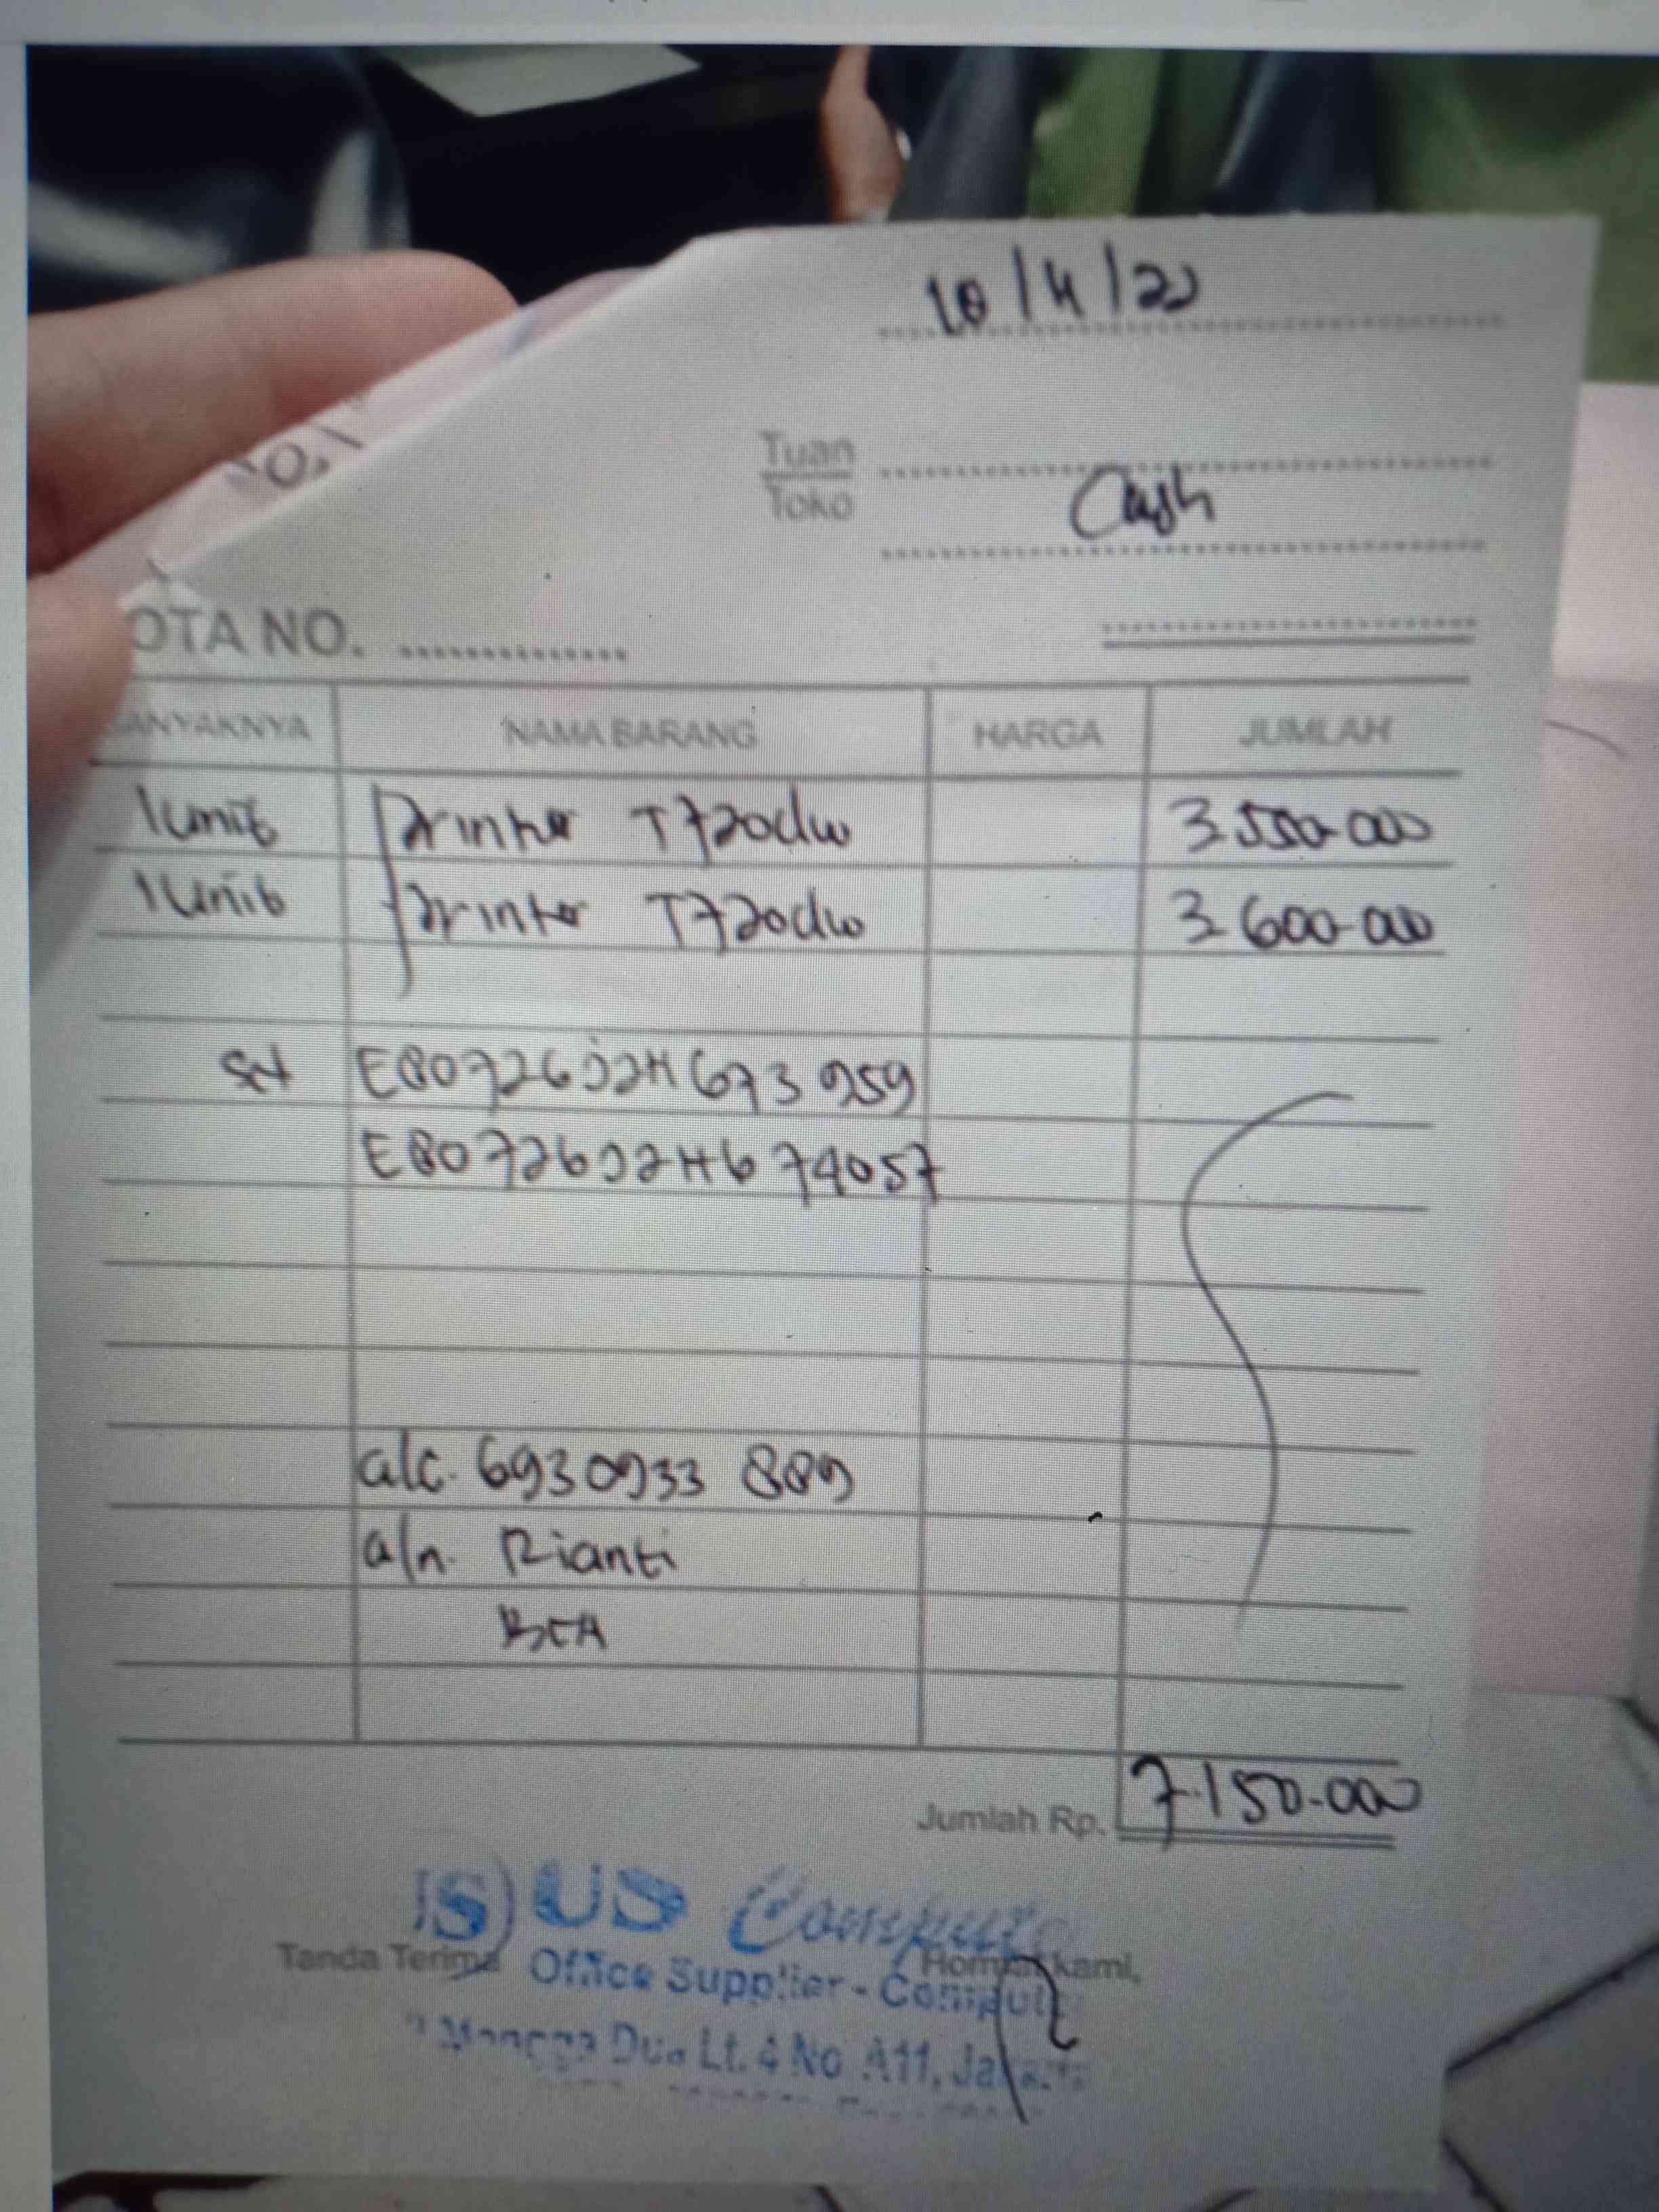 10/4/22
Tuan
Toko
Cash
OTA NO.
ANYAKNYA NAMA BARANG HARGA JUMLAH
1 unit Printer T720dw 3.550.000
1 unit Printer T720dw 3.600.000
SN E80726J2H673959
E80726J2H674057
a/c. 6930933 889
a/n. Rianti
BCA
Jumlah Rp. 7.150.000
US Compute
Tanda Terima Hormat kami,
Office Supplier - Compute
Mangga Dua Lt. 4 No A11, Jakarta